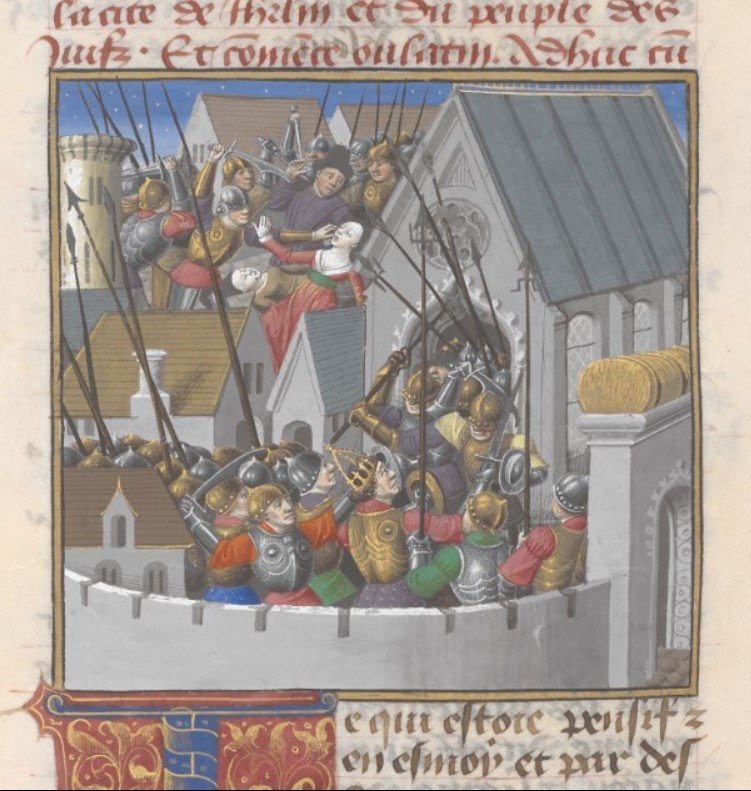 la cite de Jhrlm et du peuple des
Juifz. Et cõmẽce ou latin. Adhuc cũ
e qui estoie pensif z
en esmoy et par des